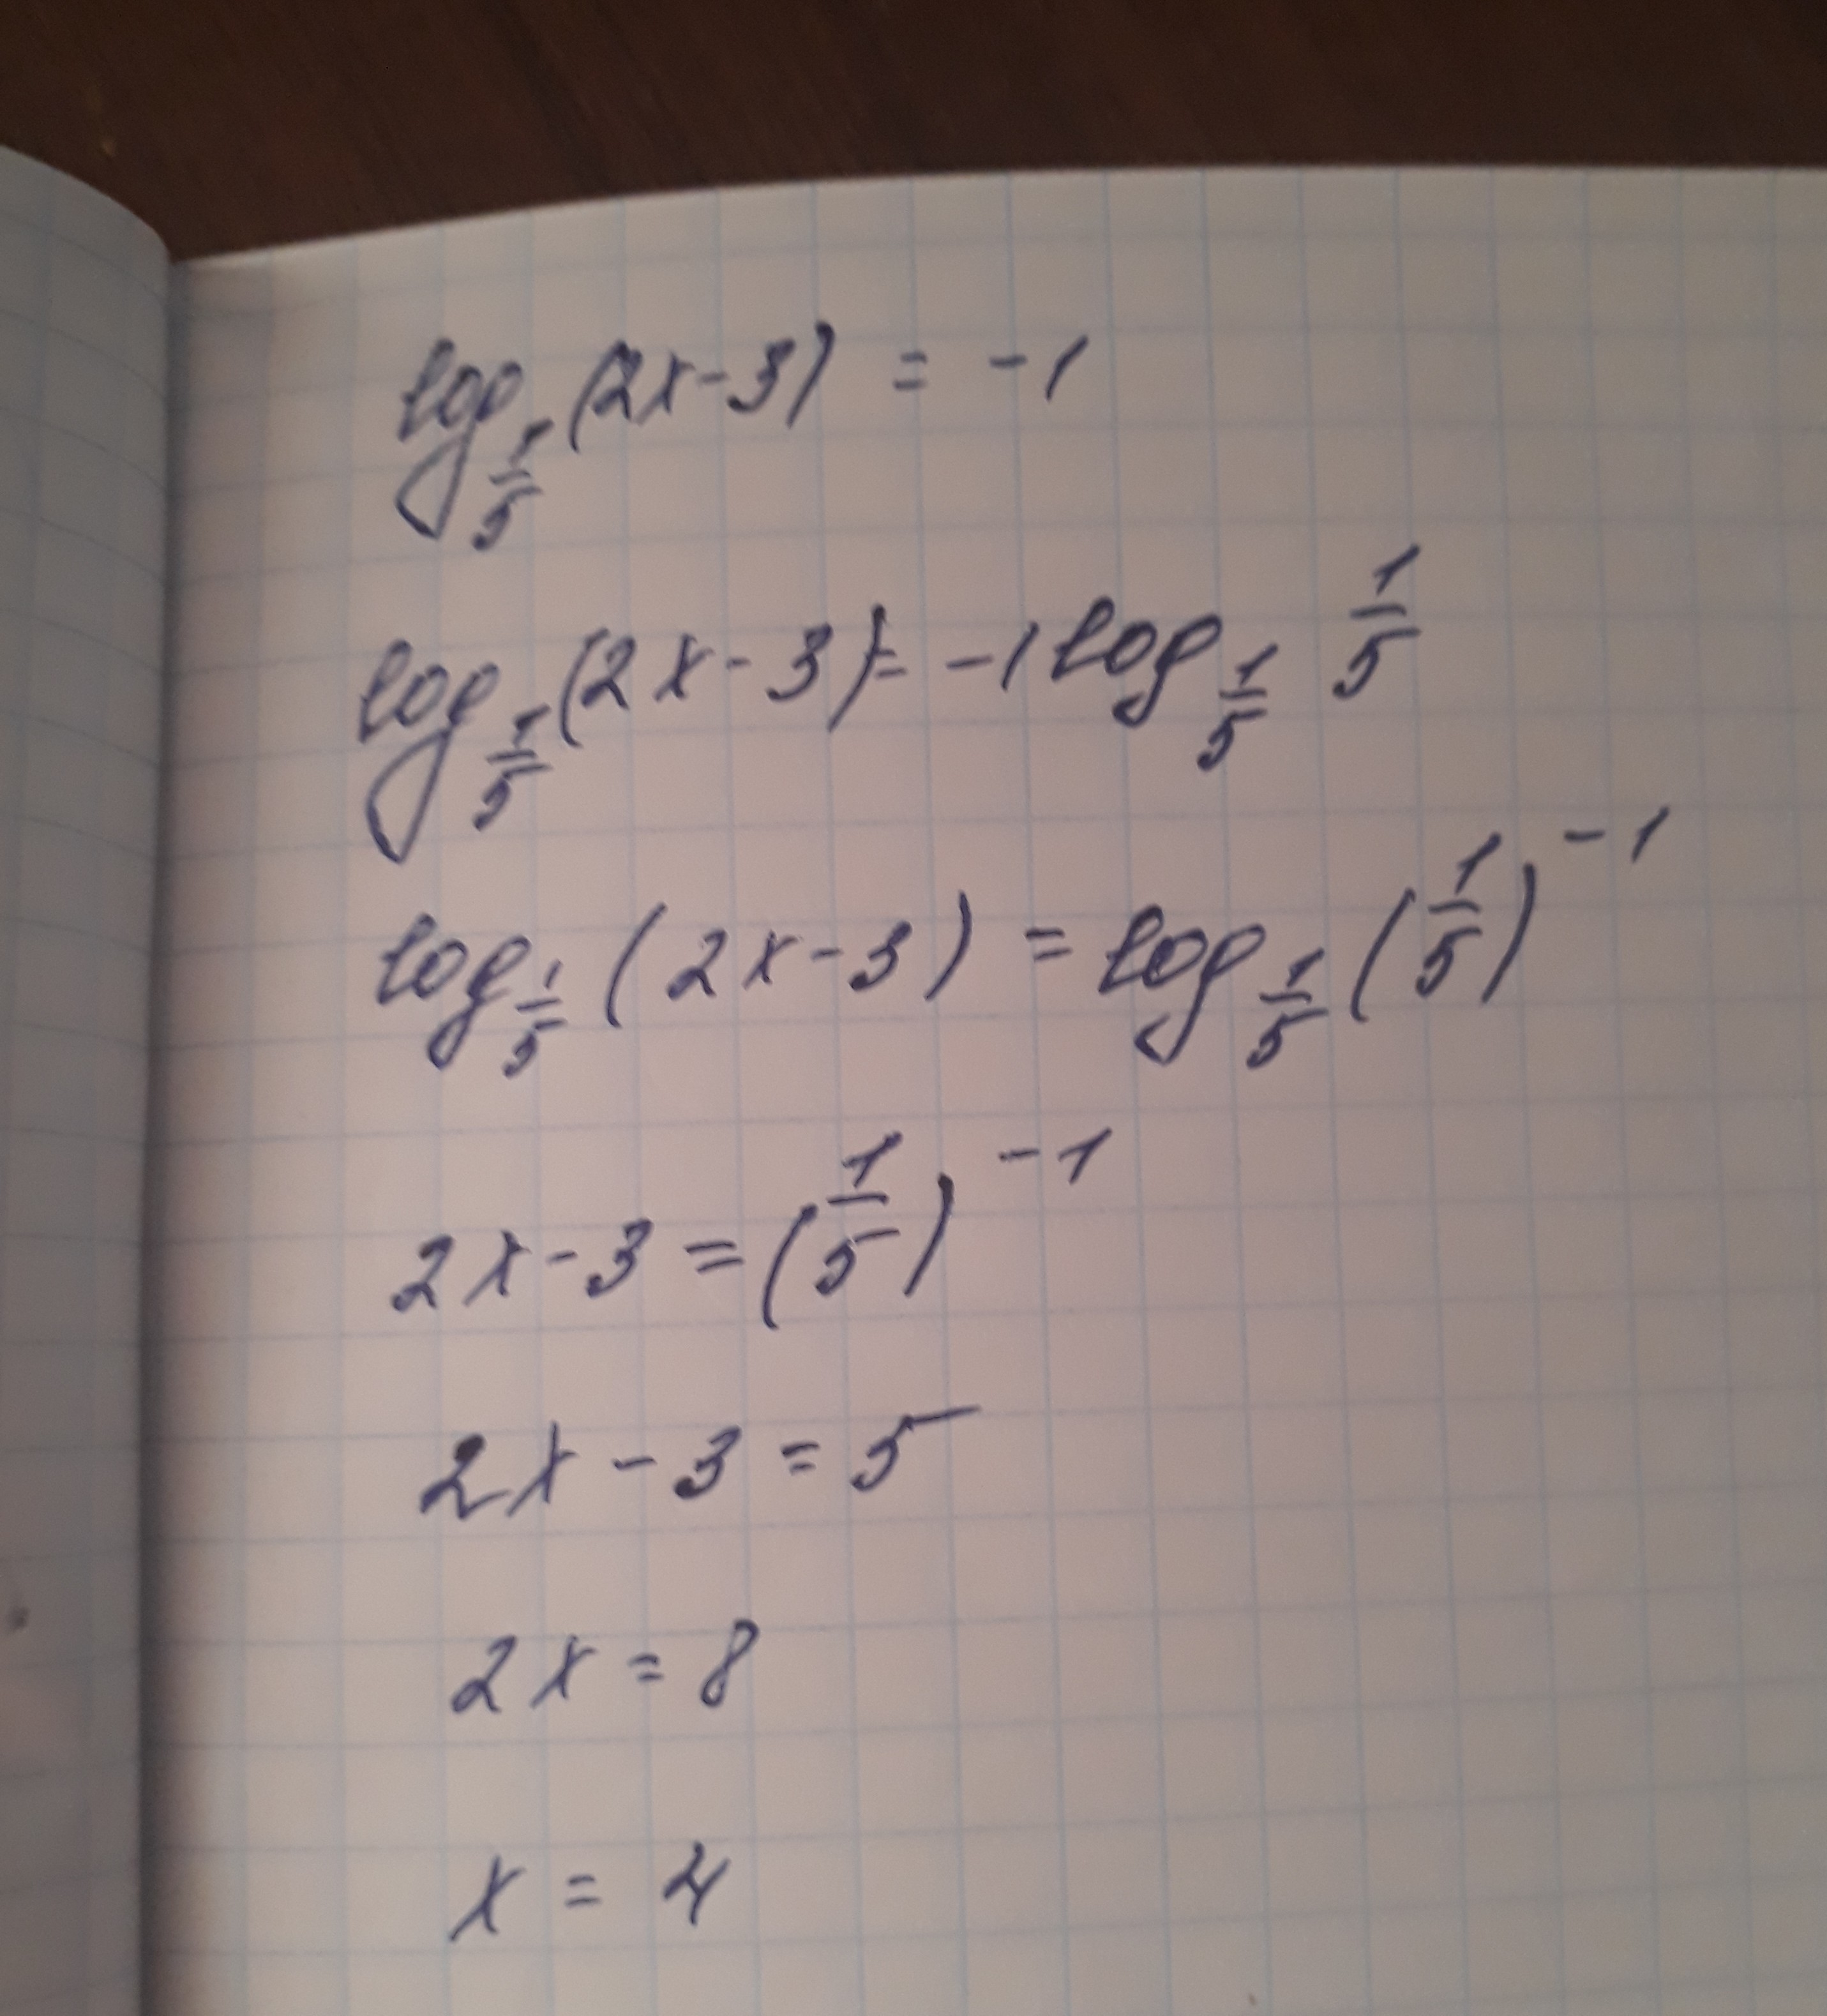 log_{1/5} (2x-3) = -1
log_{1/5} (2x-3) = -1 log_{1/5} 1/5
log_{1/5} (2x-3) = log_{1/5} (1/5)^{-1}
2x-3 = (1/5)^{-1}
2x-3 = 5
2x = 8
x = 4